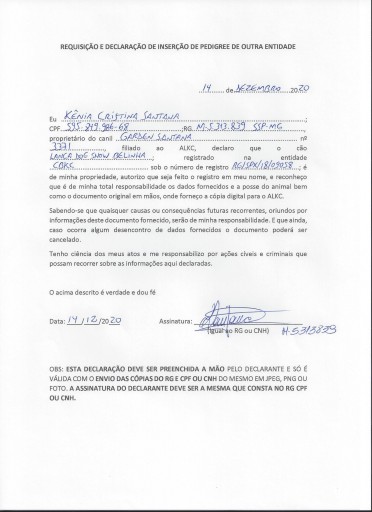 REQUISIÇÃO E DECLARAÇÃO DE INSERÇÃO DE PEDIGREE DE OUTRA ENTIDADE
14 de DEZEMBRO 2020
Eu KÊNIA CRISTINA SANTANA
CPF 595.849.986-68 ;RG M-5.313.839 SSP-MG
proprietário do canil GARDEN SANTANA nº
3371, filiado ao ALKC, declaro que o cão
LANCA DOS SNOW BELINHA, registrado na entidade
CBKC sob o número de registro RG/SPX/18/09058, é
de minha propriedade, autorizo que seja feito o registro em meu nome, e reconheço
que é de minha total responsabilidade os dados fornecidos e a posse do animal bem
como o documento original em mãos, onde forneço a cópia digital para o ALKC.
Sabendo-se que quaisquer causas ou consequências futuras recorrentes, oriundos por
informações deste documento fornecido, serão de minha responsabilidade. E que ainda,
caso ocorra algum desencontro de dados fornecidos o documento poderá ser
cancelado.
Tenho ciência dos meus atos e me responsabilizo por ações cíveis e criminais que
possam recorrer sobre as informações aqui declaradas.
O acima descrito é verdade e dou fé
Data: 14/12/2020 Assinatura:
(Igual ao RG ou CNH) M-5313839
OBS: ESTA DECLARAÇÃO DEVE SER PREENCHIDA A MÃO PELO DECLARANTE E SÓ É
VÁLIDA COM O ENVIO DAS CÓPIAS DO RG E CPF OU CNH DO MESMO EM JPEG, PNG OU
FOTO. A ASSINATURA DO DECLARANTE DEVE SER A MESMA QUE CONSTA NO RG CPF
OU CNH.